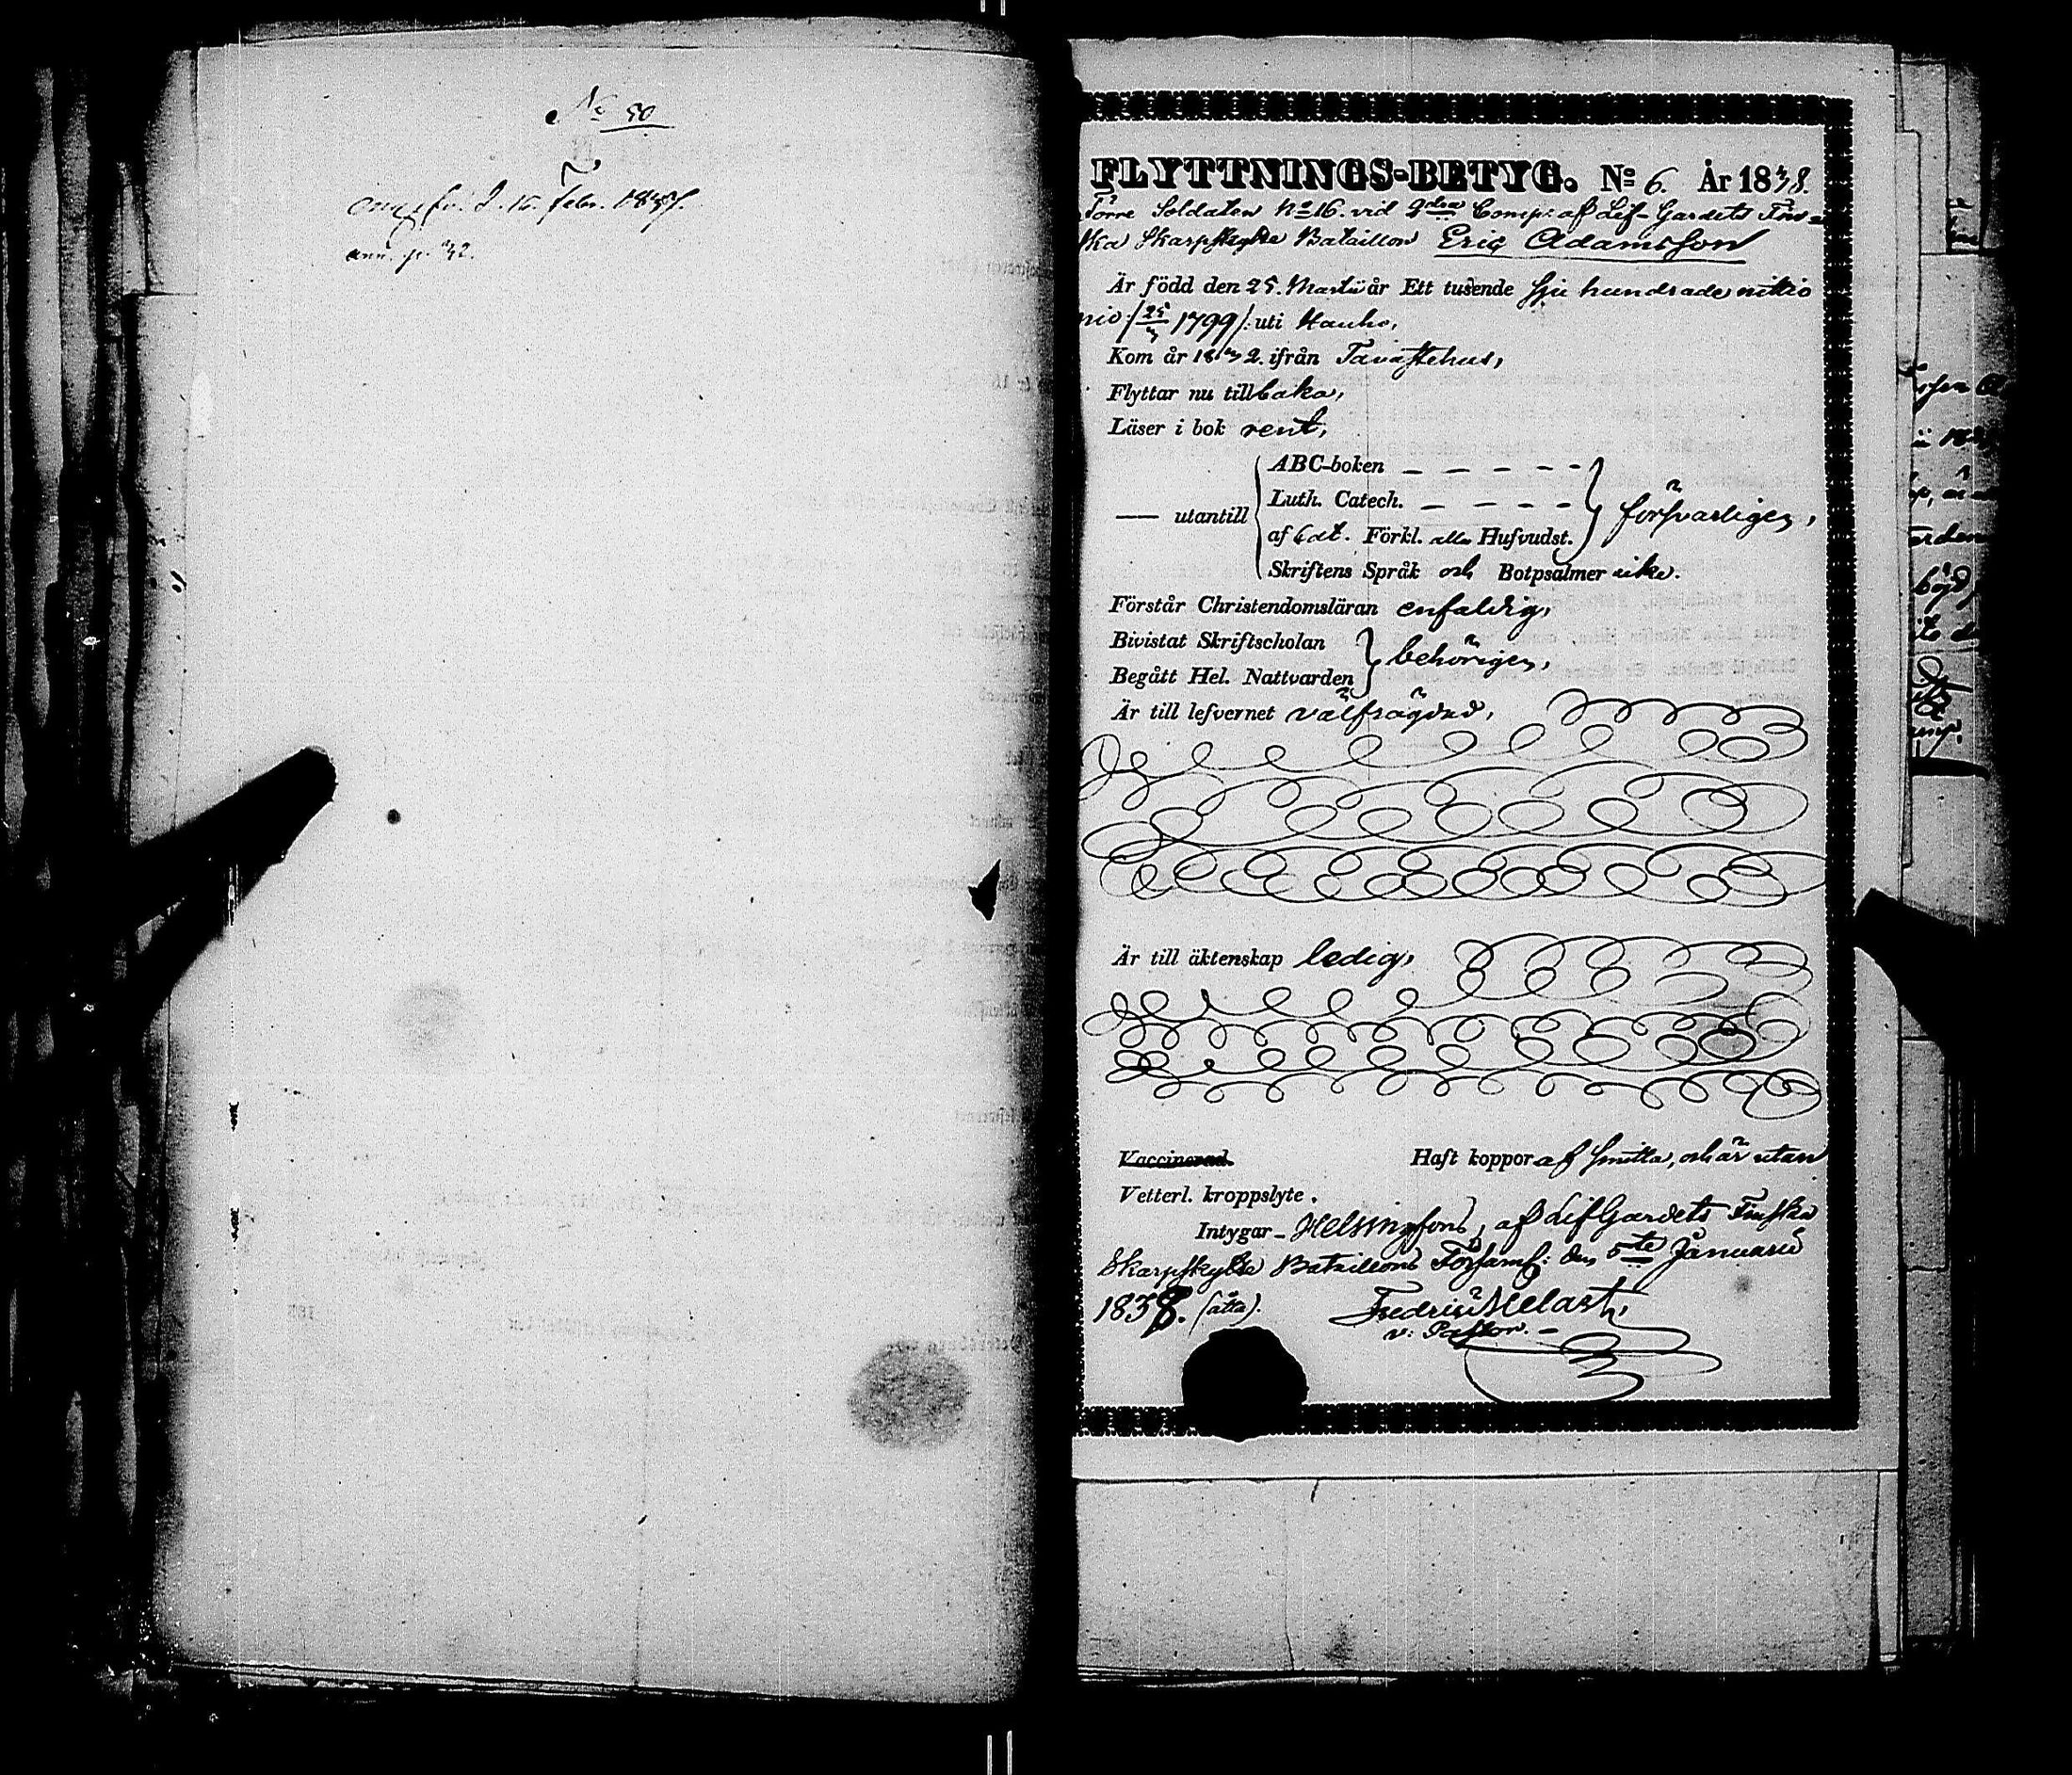 No 50
Febr.
FLYTTNINGS-BETYG. No 6. År 1838.
Förre Soldaten No 16. vid 2dra Comp: af Lif-Gardets Fins-
ka Skarpskytte Bataillon Eric Adamsson
Är född den 25. Martii år Ett tusende Sju hundrade nittio
nio /: 25/3 1799 /: uti Hauho,
Kom år 1832. ifrån Tavastehus,
Flyttar nu tillbaka,
Läser i bok rent,
ABC-boken – – – – –
Luth. Catech. – – – –
— utantill försvarligen,
af 6 dt. Förkl. alla Hufvudst.
Skriftens Språk och Botpsalmer icke.
Förstår Christendomsläran enfaldig,
Bivistat Skriftscholan
behörigen,
Begått Hel. Nattvarden
Är till lefvernet välfrägdad,
Är till äktenskap ledig,
Vaccinerad. Haft koppor af smitta, och är utan
Vetterl. kroppslyte.
Intygar - Helsingfors, af LifGardets Finska
Skarpskytte Bataillons Församl: den 5te Januarii
1838. (åtta). Fredric Melart,
v: Pastor. –